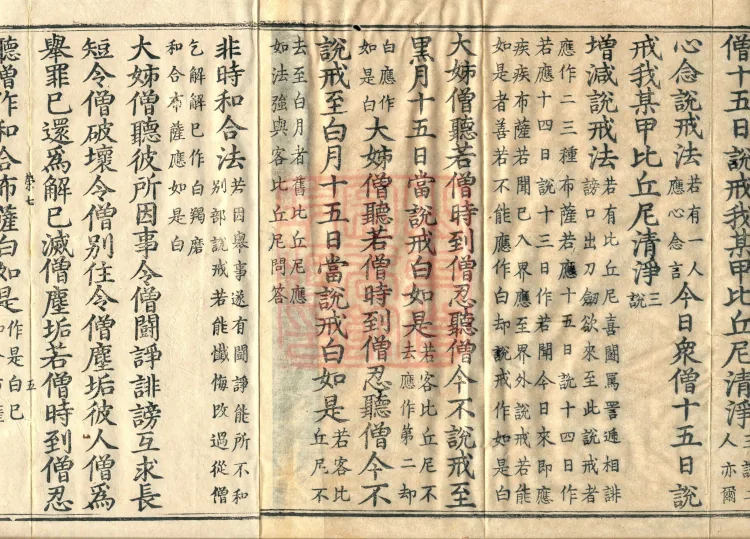 僧十五日說戒我某甲比丘尼清淨人亦爾
心念說戒法若有一人應心念言今日衆僧十五日說
戒我某甲比丘尼清淨三說
增減說戒法若有比丘尼喜鬪罵詈遞相誹謗口出刀劔欲來至此說戒者
應作二三種布薩若應十五日說十四日作
若應十四日說十三日作若聞今日來即應
疾疾布薩若聞已入界應至界外說戒若能
如是者善若不能應作白却說戒作如是白
大姊僧聽若僧時到僧忍聽僧今不說戒至
黑月十五日當說戒白如是若客比丘尼不去應作第二却
白應作如是白大姊僧聽若僧時到僧忍聽僧今不
說戒至白月十五日當說戒白如是若客比丘尼不
去至白月者舊比丘尼應
如法強與客比丘尼問答
非時和合法若因舉事遂有鬪諍能所不和別部說戒若能懺悔改過從僧
乞解解已作白羯磨
和合布薩應如是白
大姊僧聽彼所因事令僧鬪諍誹謗互求長
短令僧破壞令僧別住令僧塵垢彼人僧爲
舉罪已還爲解已滅僧塵垢若僧時到僧忍
崇七 五
聽僧作和合布薩白如是作是白已